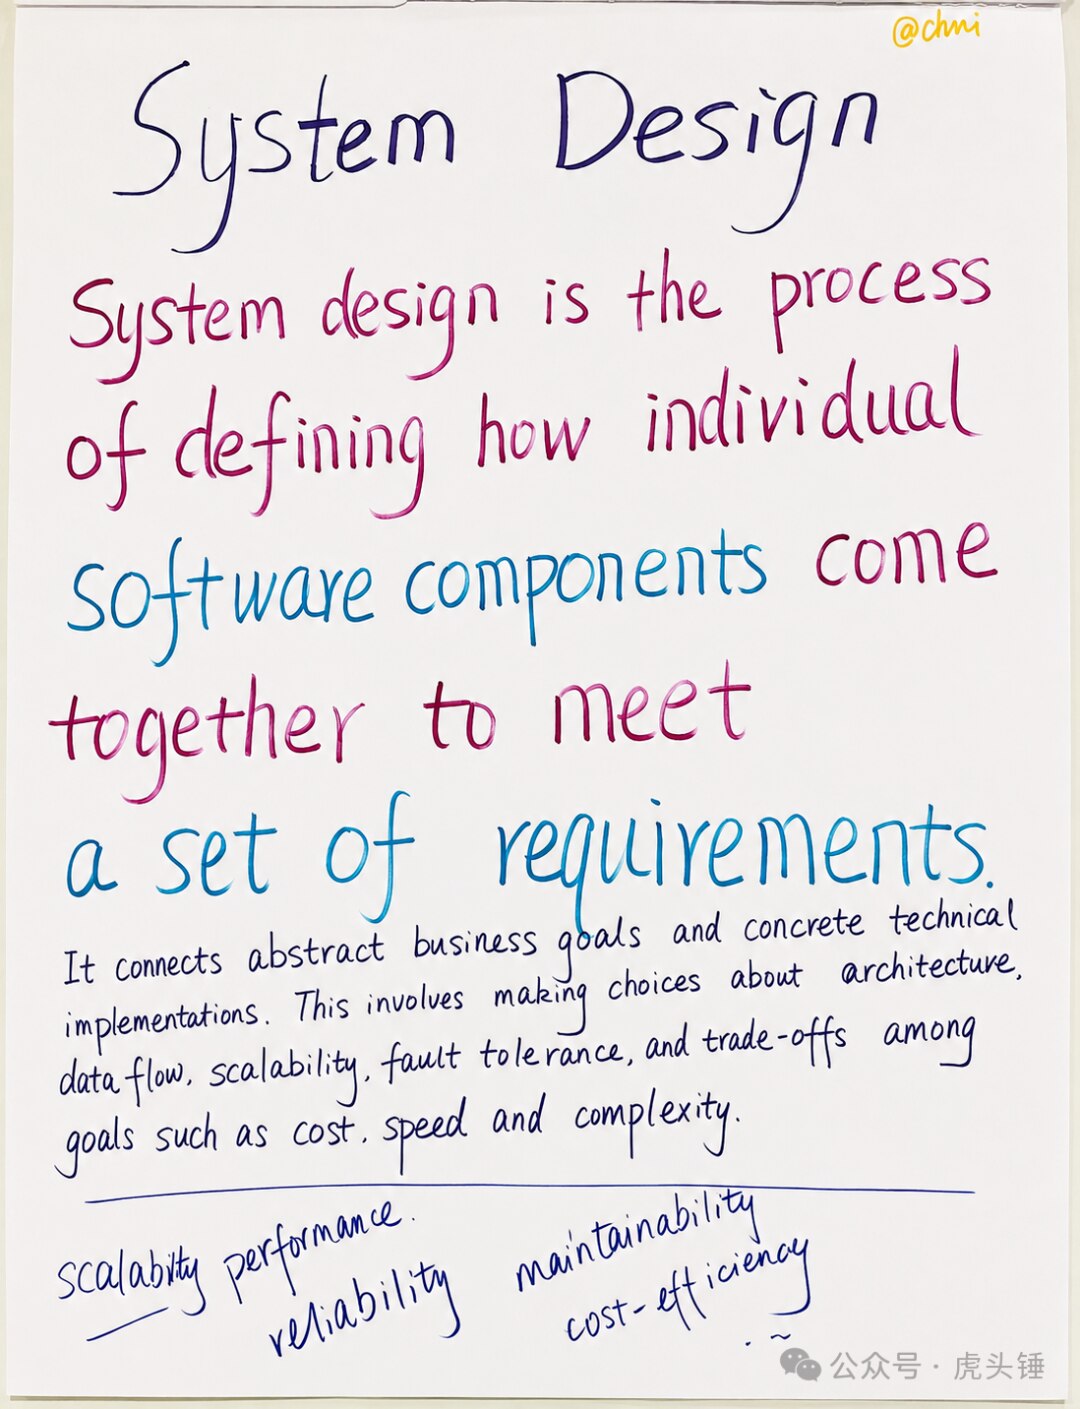 @chni
System Design
System design is the process
of defining how individual
software components come
together to meet
a set of requirements.
It connects abstract business goals and concrete technical
implementations. This involves making choices about architecture,
data flow, scalability, fault tolerance, and trade-offs among
goals such as cost, speed and complexity.
scalability performance.
reliability
maintainability
cost-efficiency
公众号 · 虎头锤